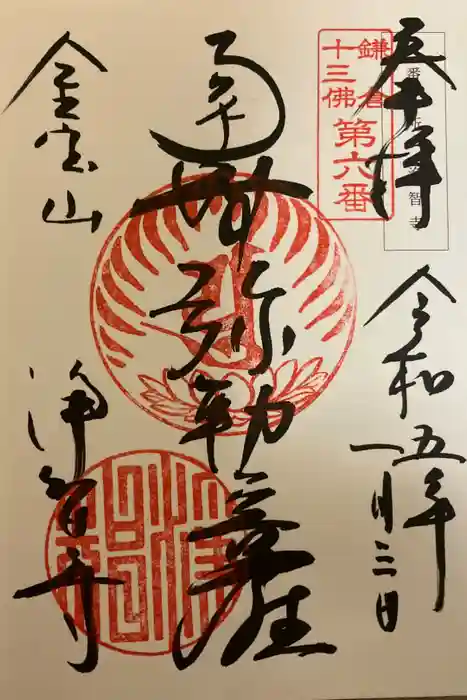 奉拝
令和五年
一月三日
鎌倉
十三佛
第六番
南無弥勒菩薩
金宝山
浄智寺